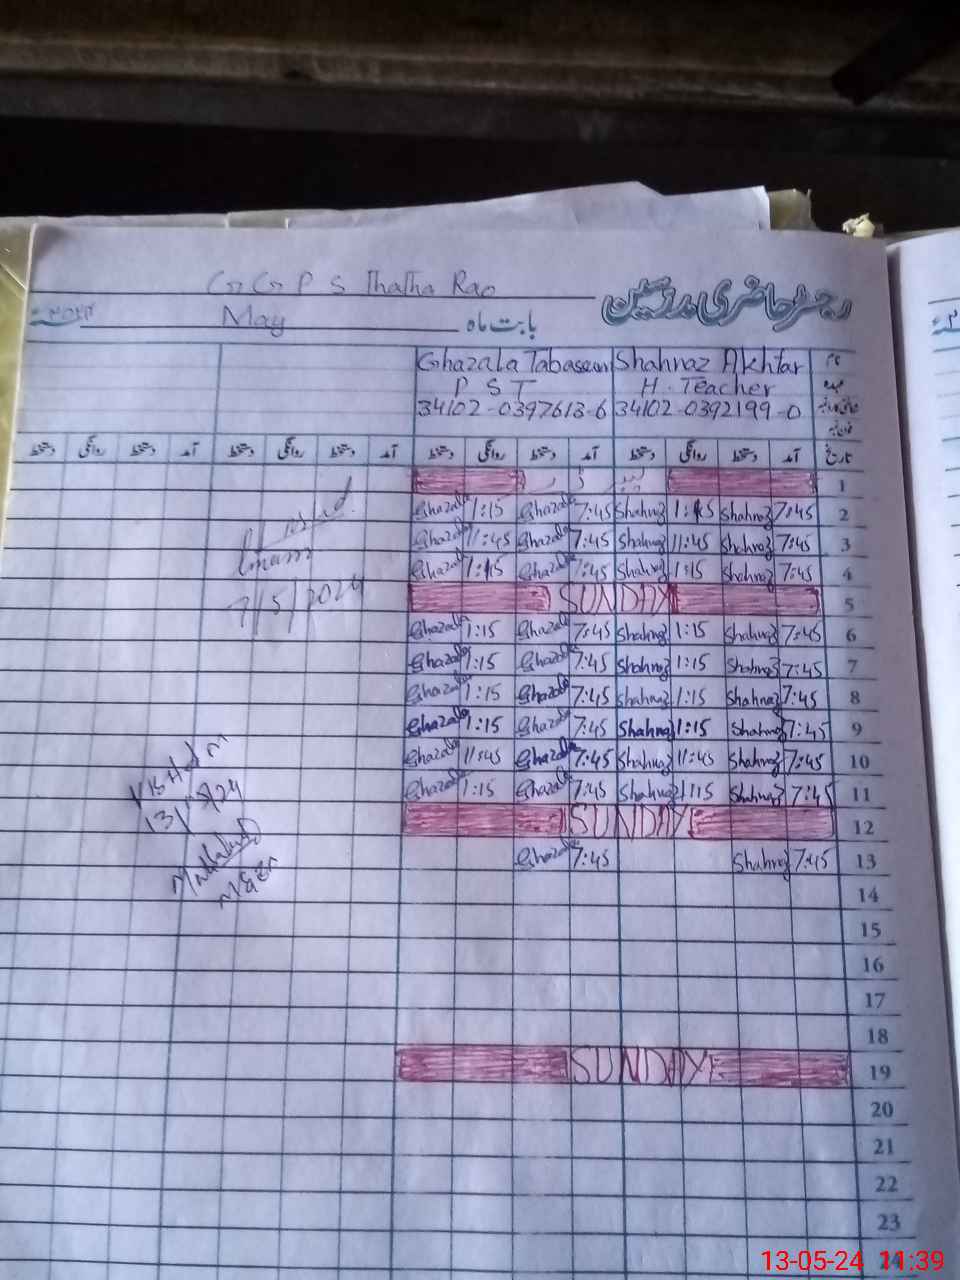 G G P S Thatha Rao
رجسٹر حاضری مدرسین
بابت ماہ May
Ghazala Tabassum Shahnaz Akhtar نام
P S T H. Teacher عہدہ
34102-0397613-6 34102-0392199-0
دستخط روانگی دستخط آمد دستخط روانگی دستخط آمد دستخط روانگی دستخط آمد دستخط روانگی دستخط آمد تاریخ
1
Ghazala 1:15 Ghazala 7:45 Shahnaz 1:15 Shahnaz 7:45 2
Ghazala 11:45 Ghazala 7:45 Shahnaz 11:45 Shahnaz 7:45 3
Ghazala 1:15 Ghazala 7:45 Shahnaz 1:15 Shahnaz 7:45 4
SUNDAY 5
7/5/2024
Ghazala 1:15 Ghazala 7:45 Shahnaz 1:15 Shahnaz 7:45 6
Ghazala 1:15 Ghazala 7:45 Shahnaz 1:15 Shahnaz 7:45 7
Ghazala 1:15 Ghazala 7:45 Shahnaz 1:15 Shahnaz 7:45 8
Ghazala 1:15 Ghazala 7:45 Shahnaz 1:15 Shahnaz 7:45 9
Ghazala 11:45 Ghazala 7:45 Shahnaz 11:45 Shahnaz 7:45 10
Ghazala 1:15 Ghazala 7:45 Shahnaz 1:15 Shahnaz 7:45 11
SUNDAY 12
Ghazala 7:45 Shahnaz 7:45 13
14
15
16
17
18
SUNDAY 19
20
21
22
23
24
13-05-24 11:39